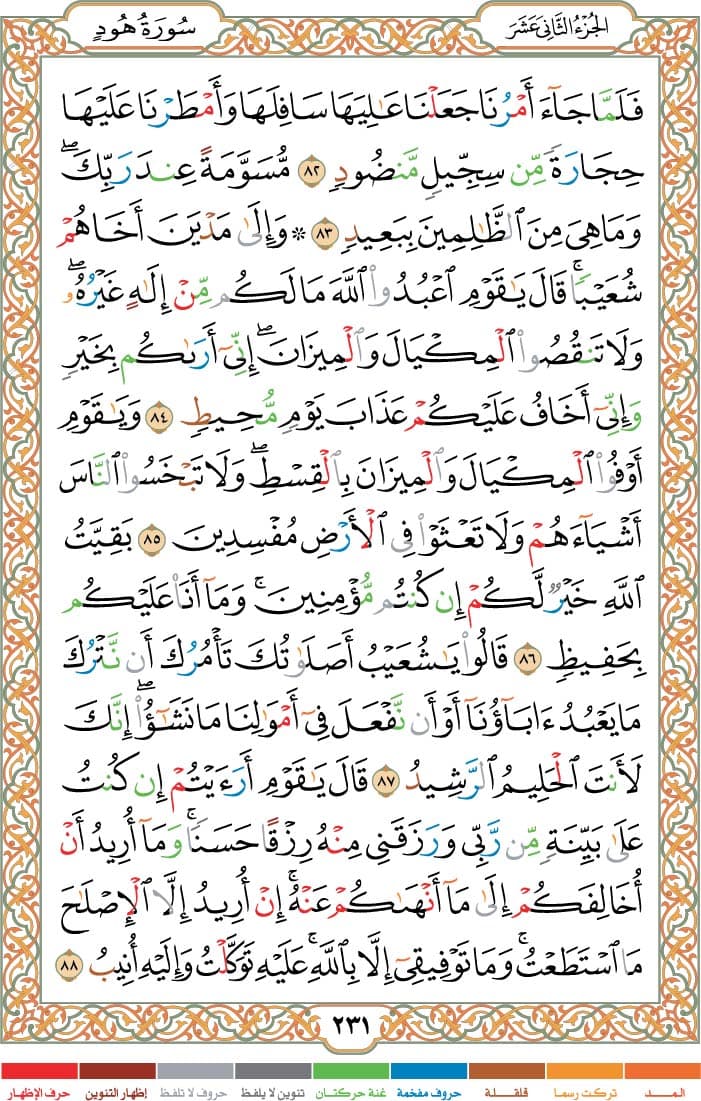 الجُزْءُ الثَّانِيَ عَشَرَ
سُورَةُ هُودٍ
فَلَمَّا جَآءَ أَمْرُنَا جَعَلْنَا عَٰلِيَهَا سَافِلَهَا وَأَمْطَرْنَا عَلَيْهَا
حِجَارَةً مِّن سِجِّيلٍ مَّنضُودٍ ٨٢ مُّسَوَّمَةً عِندَ رَبِّكَۖ
وَمَا هِيَ مِنَ ٱلظَّٰلِمِينَ بِبَعِيدٍ ٨٣ ۞ وَإِلَىٰ مَدْيَنَ أَخَاهُمْ
شُعَيْبًاۚ قَالَ يَٰقَوْمِ ٱعْبُدُوا۟ ٱللَّهَ مَا لَكُم مِّنْ إِلَٰهٍ غَيْرُهُۥۖ
وَلَا تَنقُصُوا۟ ٱلْمِكْيَالَ وَٱلْمِيزَانَۖ إِنِّىٓ أَرَىٰكُم بِخَيْرٍ
وَإِنِّىٓ أَخَافُ عَلَيْكُمْ عَذَابَ يَوْمٍ مُّحِيطٍ ٨٤ وَيَٰقَوْمِ
أَوْفُوا۟ ٱلْمِكْيَالَ وَٱلْمِيزَانَ بِٱلْقِسْطِۖ وَلَا تَبْخَسُوا۟ ٱلنَّاسَ
أَشْيَآءَهُمْ وَلَا تَعْثَوْا۟ فِى ٱلْأَرْضِ مُفْسِدِينَ ٨٥ بَقِيَّتُ
ٱللَّهِ خَيْرٌ لَّكُمْ إِن كُنتُم مُّؤْمِنِينَۚ وَمَآ أَنَا۠ عَلَيْكُم
بِحَفِيظٍ ٨٦ قَالُوا۟ يَٰشُعَيْبُ أَصَلَوٰتُكَ تَأْمُرُكَ أَن نَّتْرُكَ
مَا يَعْبُدُ ءَابَآؤُنَآ أَوْ أَن نَّفْعَلَ فِىٓ أَمْوَٰلِنَا مَا نَشَٰٓؤُا۟ۖ إِنَّكَ
لَأَنتَ ٱلْحَلِيمُ ٱلرَّشِيدُ ٨٧ قَالَ يَٰقَوْمِ أَرَءَيْتُمْ إِن كُنتُ
عَلَىٰ بَيِّنَةٍ مِّن رَّبِّى وَرَزَقَنِى مِنْهُ رِزْقًا حَسَنًاۚ وَمَآ أُرِيدُ أَنْ
أُخَالِفَكُمْ إِلَىٰ مَآ أَنْهَىٰكُمْ عَنْهُۚ إِنْ أُرِيدُ إِلَّا ٱلْإِصْلَٰحَ
مَا ٱسْتَطَعْتُۚ وَمَا تَوْفِيقِىٓ إِلَّا بِٱللَّهِۚ عَلَيْهِ تَوَكَّلْتُ وَإِلَيْهِ أُنِيبُ ٨٨
٢٣١
المـــد تركت رسما قلقـلة حروف مفخمة غنة حركتان تنوين لا يلفظ حروف لا تلفظ إظهار التنوين حرف الإظهار